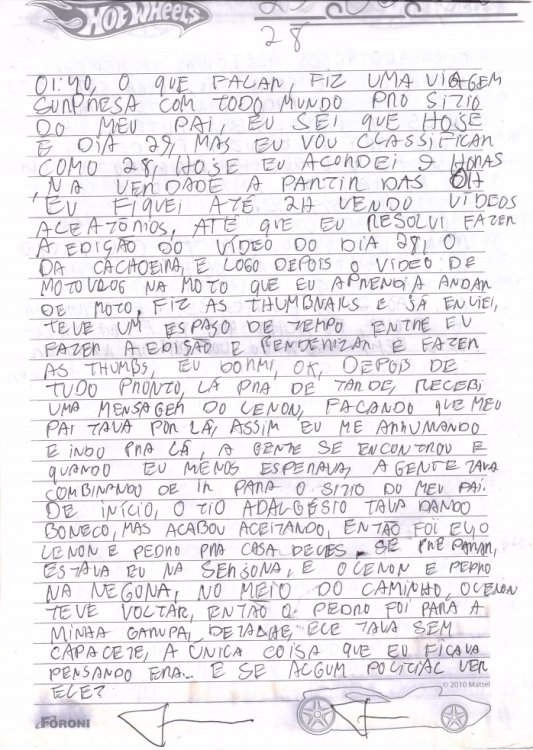 HOT WHEELS
28
01:40, O QUE FALAR, FIZ UMA VIAGEM
SURPRESA COM TODO MUNDO PRO SITIO
DO MEU PAI, EU SEI QUE HOJE
E DIA 29, MAS EU VOU CLASSIFICAR
COMO 28, HOJE EU ACORDEI 9 HORAS
, NA VERDADE A PARTIR DAS 0H
EU FIQUEI ATÉ 2H VENDO VÍDEOS
ALEATÓRIOS, ATÉ QUE EU RESOLVI FAZER
A EDIÇÃO DO VÍDEO DO DIA 28, O
DA CACHOEIRA, E LOGO DEPOIS O VIDEO DE
MOTOVLOG NA MOTO QUE EU APRENDIA ANDAR
DE MOTO, FIZ AS THUMBNAILS E JÁ ENVIEI,
TEVE UM ESPASO DE TEMPO ENTRE EU
FAZER A EDISÃO E RENDERIZAR E FAZER
AS THUMBS, EU DORMI, OK, DEPOIS DE
TUDO PRONTO, LÁ PRA DE TARDE, RECEBI
UMA MENSAGEM DO LENON, FALANDO QUE MEU
PAI TAVA POR LÁ, ASSIM EU ME ARRUMANDO
E INDO PRA LÁ, A GENTE SE ENCONTROU E
QUANDO EU MENOS ESPERAVA, A GENTE TAVA
COMBINANDO DE IR PARA O SITIO DO MEU PAI.
DE INÍCIO, O TIO ADALGÉSIO TAVA DANDO
BONECO, MAS ACABOU ACEITANDO, ENTÃO FOI EU, O
LENON E PEDRO PRA CASA DELES, SE PREPARAR,
ESTAVA EU NA SENSONA, E O LENON E PEDRO
NA NEGONA, NO MEIO DO CAMINHO, O LENON
TEVE VOLTAR, ENTÃO O PEDRO FOI PARA A
MINHA GARUPA, DETALHE, ELE TAVA SEM
CAPACETE, A ÚNICA COISA QUE EU FICAVA
PENSANDO ERA... E SE ALGUM POLICIAL VER
ELE?
© 2010 Mattel
FORONI